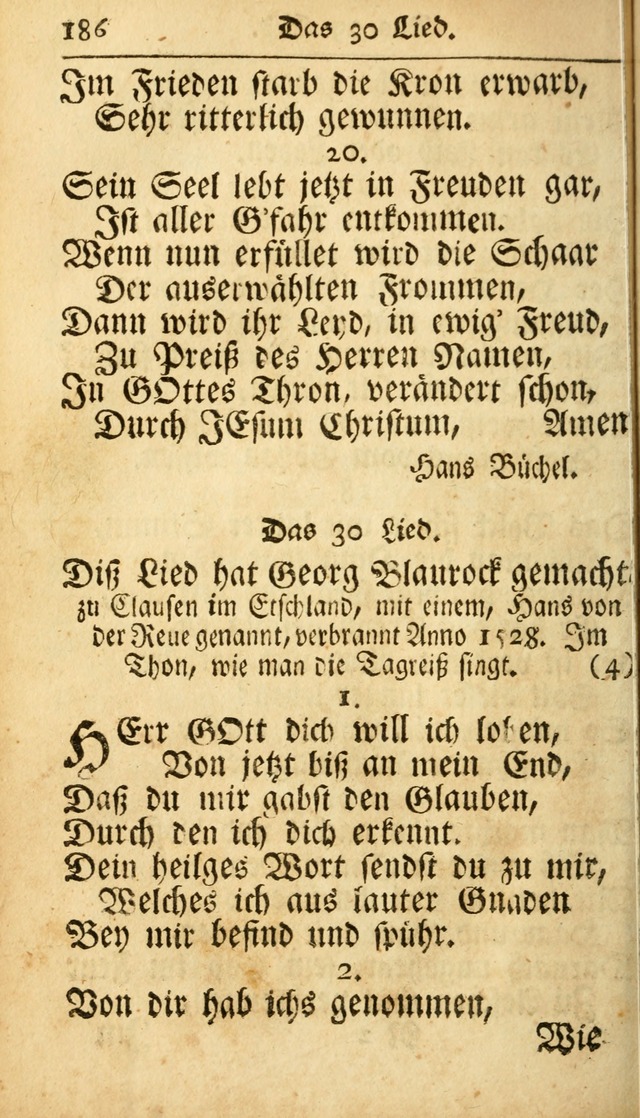 186 Das 30 Lied.
Im Frieden starb die Kron erwarb,
Sehr ritterlich gewunnen.
20.
Sein Seel lebt jetzt in Freuden gar,
Ist aller G'fahr entkommen.
Wenn nun erfüllet wird die Schaar
Der auserwählten Frommen,
Dann wird ihr Leyd, in ewig' Freud,
Zu Preiß des Herren Namen,
In GOttes Thron, verändert schon,
Durch JEsum Christum, Amen
Hans Büchel.
Das 30 Lied.
Diß Lied hat Georg Blaurock gemacht
zu Clausen im Etschland, mit einem, Hans von
der Reue genannt, verbrannt Anno 1528. Im
Thon, wie man die Tagreiß singt. (4)
1.
HErr GOtt dich will ich loben,
Von jetzt biß an mein End,
Daß du mir gabst den Glauben,
Durch den ich dich erkennt.
Dein heilges Wort sendst du zu mir,
Welches ich aus lauter Gnaden
Bey mir befind und spühr.
2.
Von dir hab ichs genommen,
Wie